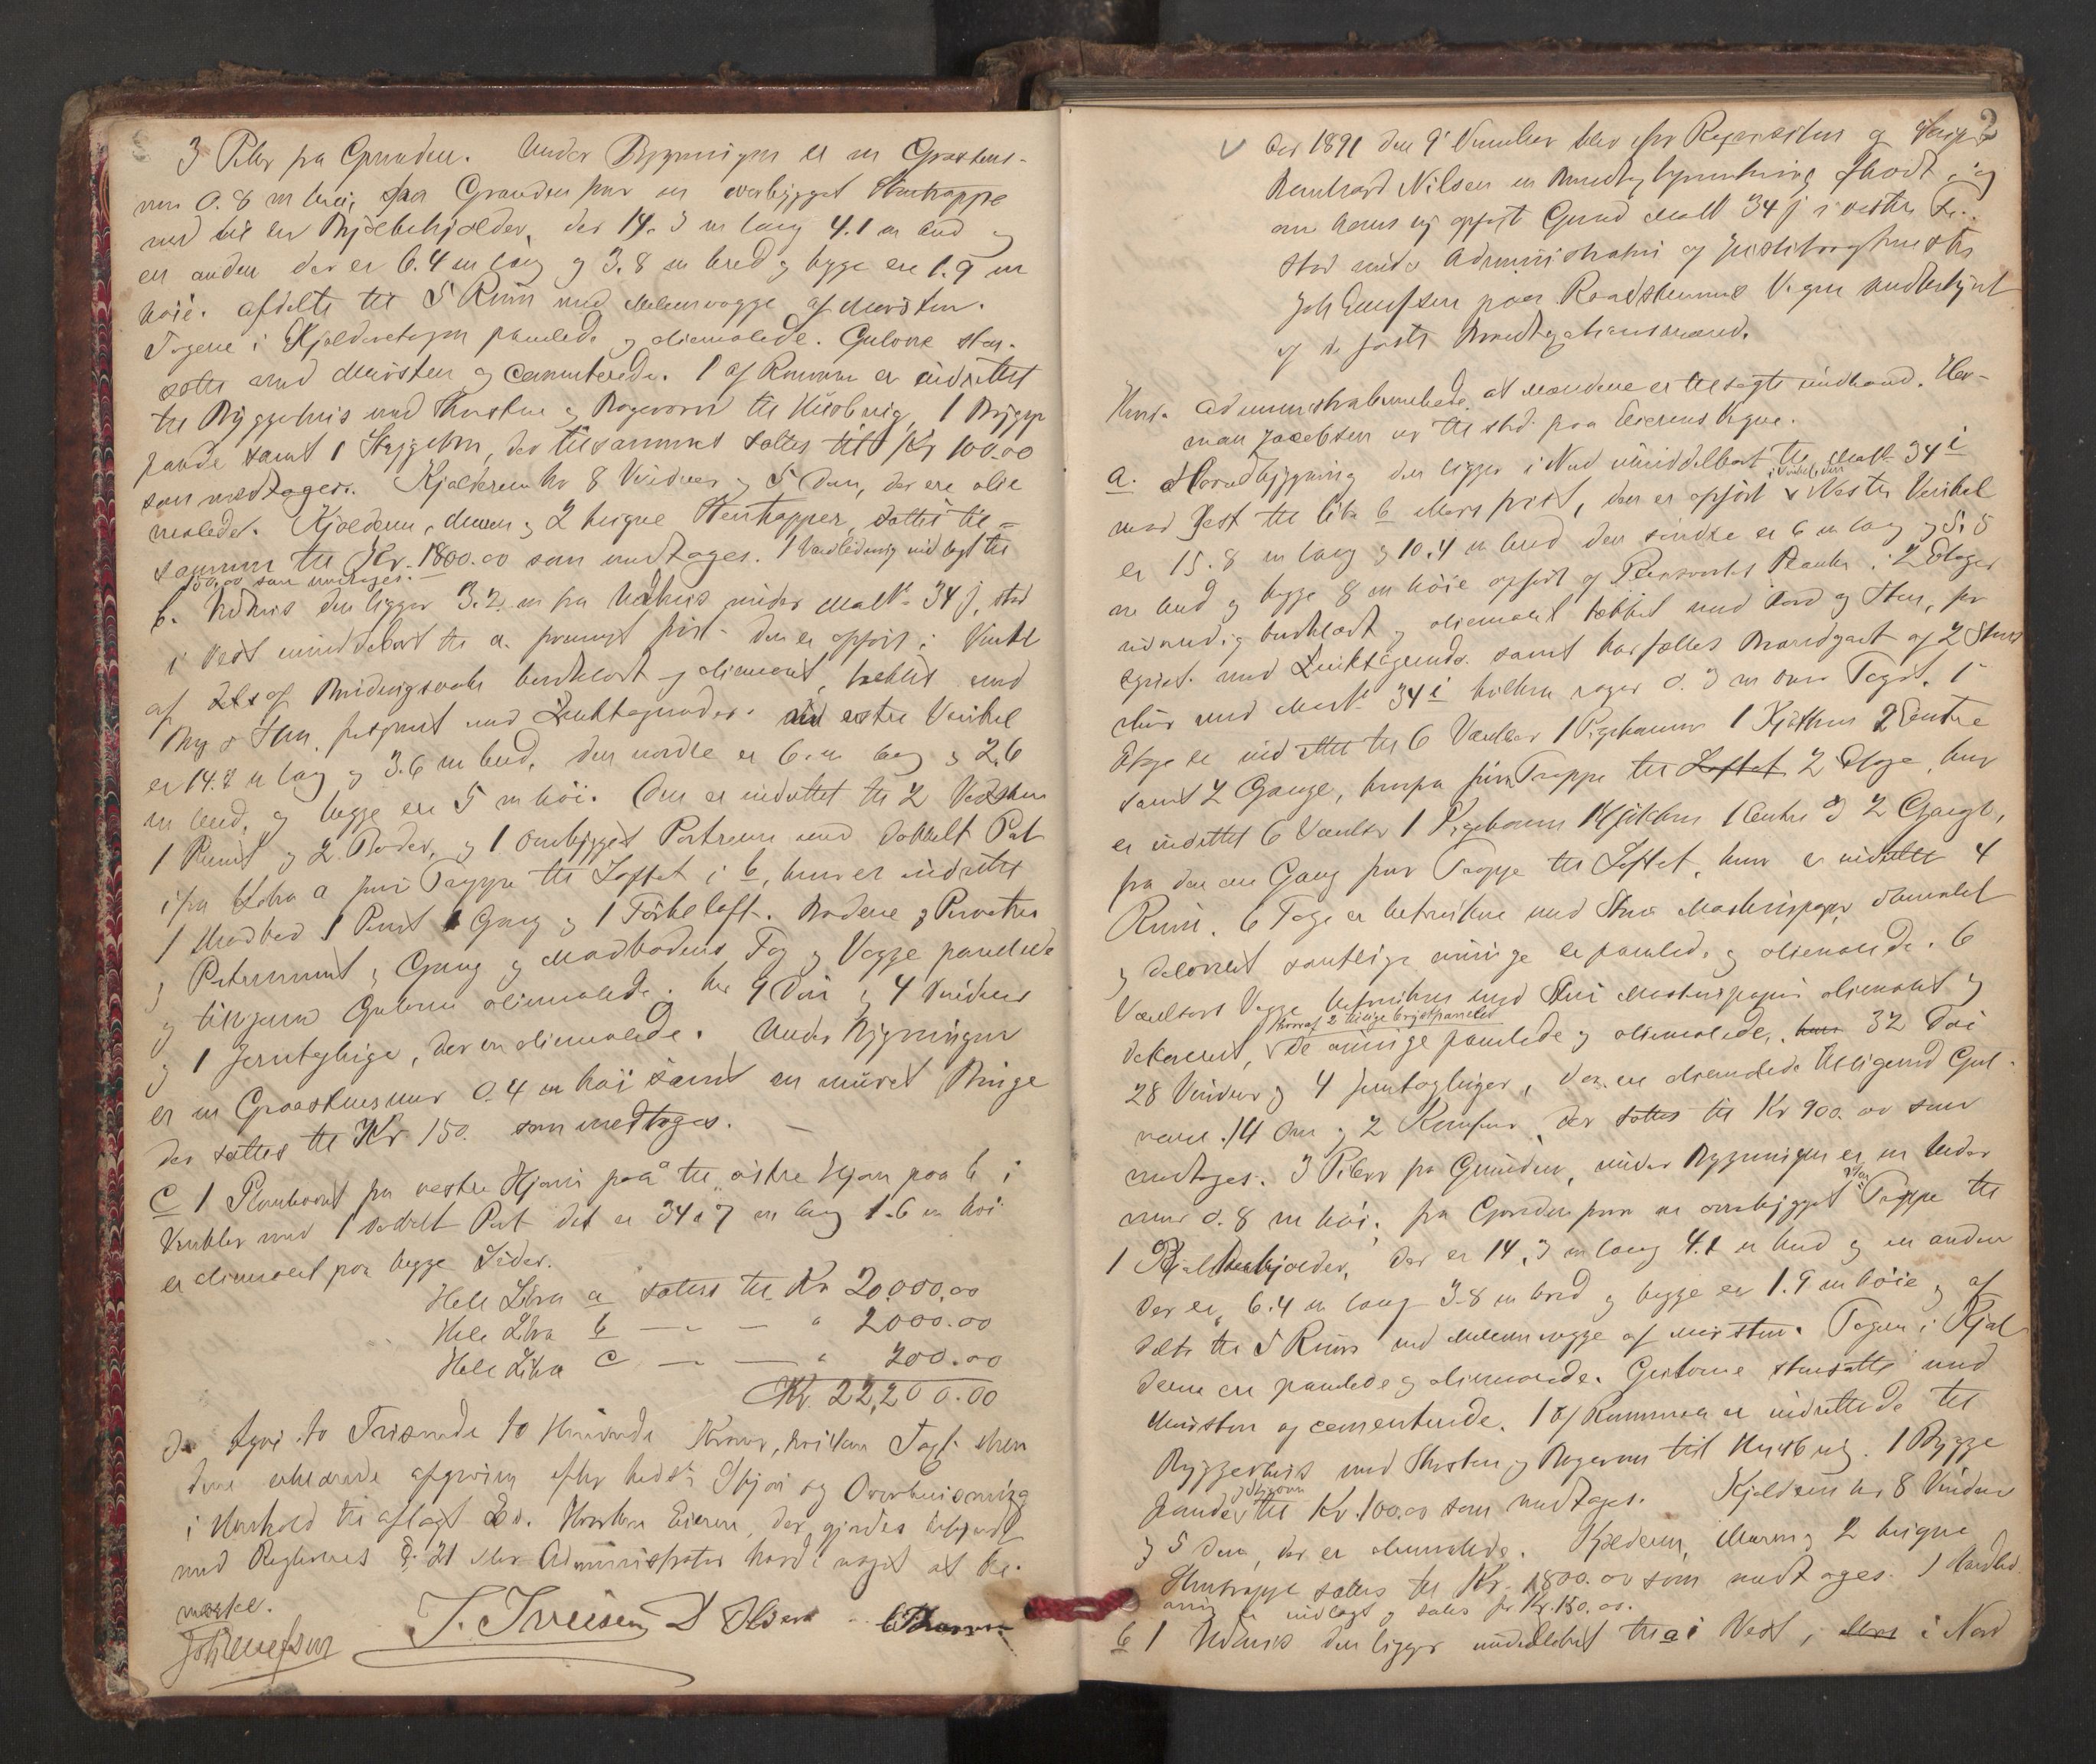 3 Piber fra Grunden. Under Bygningen er en Graastens-
mur 0.8 m høi, fra Grunden fører en overbygget Stentrappe
ned til en Kjælder, der 14.3 m lang 4.1 m bred og
en anden der er 6.4 m lang og 3.8 m bred og begge ere 1.9 m
høie. afdelte til 5 Rum med Mellemvægge af Mursten.
Tagene i Kjælderetagen panelede og oliemalede. Gulvene sten-
satte med Mursten og cementerede. 1 af Rummene er indrettet
til Bryggerhus med Skorsten og Bageovn til Husbrug, 1 Brygge
pande samt 1 Strygeovn, der tilsammen sættes til Kr 100.00
som medtages. Kjælderen har 8 Vinduer og 5 Døre, der ere olie
malede. Kjælderen, Muren og 2 Stentrapper, sættes til-
sammen til Kr. 1800.00 som medtages. 1 Vandledning indlagt til
150.00 som medtages.
b. Udhus der ligger 3.2 m fra Udhus under Matr 34 j, stød
i Vest umiddelbart til a. forrengt først. den er opført i Vinkel
af Bindingsværk bordklædt og oliemalet, tækket med
og Sten, forsynet med Lugttagrender. østre Vinkel
er 14.8 m lang og 3.6 m bred, den nordre er 6. m lang og 2,6
m bred, og begge ere 5 m høi. Den er indrettet til 2 Vedskure
1 Privet og 2 Boder, og 1 ombygget Portrum med dobbelt Port
ifra Litra a fører Trappe til Loftet i b, hvor er indrettet
1 Madbod 1 Privet 1 Gang og 1 Tørkeloft. Boderne og Privetrum
og Portrummet, Gang og Madbodens Tag og Vægge panelede
og Gulvene oliemalede. har 9 Døre og 4 Vinduer
og 1 Jerntaglüge, der ere oliemalede. Under Bygningen
er en Graastensmur 0.4 m høi samt en muret Binge
der sættes til Kr 150. som medtages. —
c 1 Plankeværk fra vestre Hjørne paa til østre Hjørne paa b i
Vinkler med 1 dobbelt Port det er 34.7 m lang 1.6 m høi
er oliemalet paa begge Sider.
Hele Litra a sættes til Kr 20,000,00
Hele Litra b — „ — „ 2000.00
Hele Litra c — „ — „ 200.00
Kr. 22,200.00
Tyve to Tusende to Hundrede Kroner, hvilken Taxt Mæn
dene erklærede afgiven efter bedste Skjøn og Overbevisning
i Henhold til aflagt Ed. Hvorhos Eieren, der gjordes bekjendt
med Reglernes § 21 eller Administrator havde noget at be-
mærke.
Joh Ellefsen T. Iversen D Olsen
2
✓ Aar 1891 den 9' November blev efter Requisition af
Bernhard Nilsen en Brandtaxtforretning afholdt
over hans ny opført Gaard Matr 34 j i vestre
stad under Administration af
Joh Ellefsen paa Raadstuens Vegne medbetjent
af de faste Brandtaxationsmænd.
Hvor. Administrator melde, at Mændene er tilsagte mødende. Her-
man Jacobsen er tilstede paa Eierens Vegne.
a. Hovedbygning der ligger i Nord umiddelbart til Matr 34 i
mod Vest til Litra b, den er opført i Vinkel, den Vestre Vinkel
er 15.8 m lang og 10.4 m bred den søndre er 6 m lang og 5.5
m bred og begge 8 m høie opført af Reisværks Planker i 2 Etager
udvendig bordklædt og oliemalet tækket med Bord og Sten, for
synet med Zinktagrender samt har fælles Brandgavl af 2 Stens
Mur med Matr 34 i hvilken rager 0.3 m over Taget. 1
Etage er indrettet til 6 Værelser 1 Pigekammer 1 Kjøkken 2 Entre
samt 2 Gange, hvorfra fører Trappe til Loftet 2 Etage, hvor
er indrettet 6 Værelser 1 Pigekammer 1 Kjøkken 1 Entre og 2 Gange,
fra den ene Gang fører Trappe til Loftet, hvor er indrettet 4
Rum. 6 Tage er betrukne med Strie Maskinpapir oliemalet
og dekoreret samtlige øvrige er panlede og oliemalede. 6
Værelsers Vægge betrukne med Strie Maskinpapir oliemalet og
hvoraf 2 havige brystpaneler
dekoreret, De øvrige panlede og oliemalede, har 32 Døre
28 Vinduer og 4 Jerntaglüger, der ere oliemalede tilligemed Gul-
vene. 14 Ovne og 2 Komfurer, der sættes til Kr 900.00 som
medtages. 3 Piber fra Grunden, under Bygningen er en Under
mur 0.8 m høi, fra Grunden fører en ombygget Sten Trappe til
1 Kjælder, der er 14.3 m lang 4.1 m bred og en anden
der er 6.4 m lang 3.8 m bred og begge er 1.9 m høie og af
delte til 5 Rum med Mellemvægge af Mursten. Tagene i Kjæl
derne ere panlede og oliemalede. Gulvene stensatte med
Mursten og cementerede. 1 af Rummene er indrettede til
Bryggerhus med Skorsten og Bageovn til Husbrug. 1 Brygge
pande og Strygeovn til Kr. 100.00 som medtages. Kjælderen har 8 Vinduer
og 5 Døre, der er oliemalede. Kjælderen, Muren og 2
Stentrappe sættes til Kr. 1800.00 som medtages. 1 Vandled
ning er indlagt og sættes for Kr. 150.00.
b 1 Udhus der ligger umiddelbart til a i Vest, i Nord